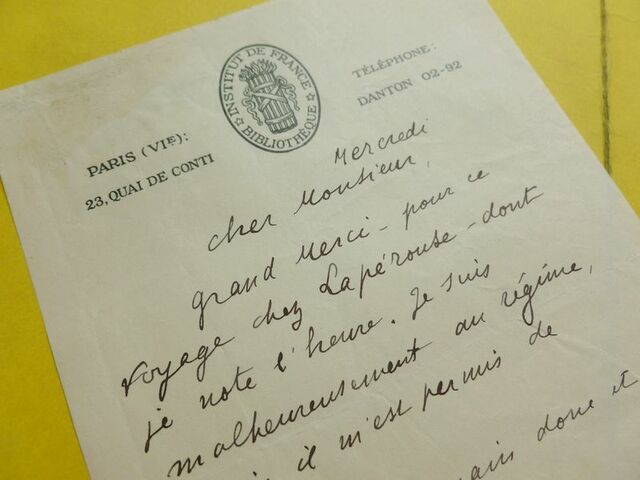 INSTITUT DE FRANCE
BIBLIOTHÈQUE
PARIS (VIE):
23, QUAI DE CONTI
TÉLÉPHONE:
DANTON 02-92
Mercredi
Cher Monsieur,
grand Merci - pour ce
voyage chez Lapérouse - dont
je note l'heure. Je suis
malheureusement au régime,
il m'est permis de
donc et